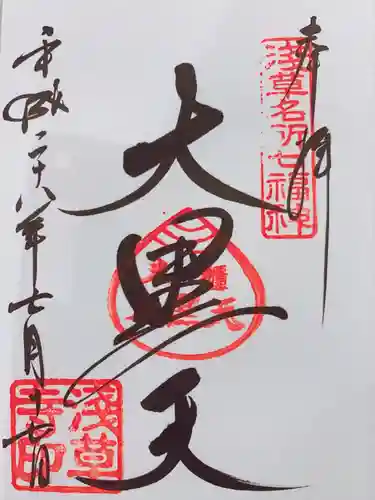 奉拝
浅草名所七福神
大黒天
平成二十八年七月十七日
浅草寺印